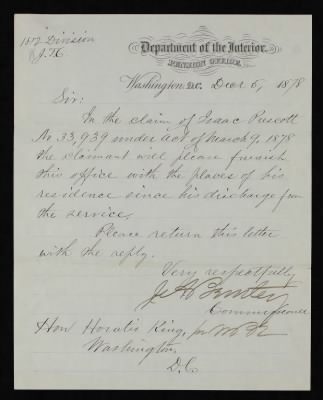 1812 Division
J.T.C.
Department of the Interior,
PENSION OFFICE,
Washington D.C. Decr 5, 1878
Sir:
In the claim of Isaac Prescott
No 33,939 under act of March 9, 1878
the claimant will please furnish
this office with the places of his
residence since his discharge from
the service.
Please return this letter
with the reply.
Very respectfully
J A Bentley
Commissioner
Hon Horatio King,
Washington,
D.C.